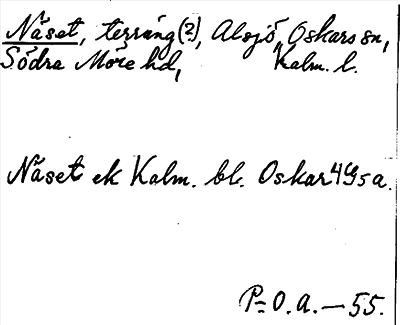 Näset, terräng(?), Alsjö, Oskars sn,
Södra Möre hd, Kalm. l.
Näset ek Kalm. bl. Oskar 4G5a.
P-O.A. — 55.